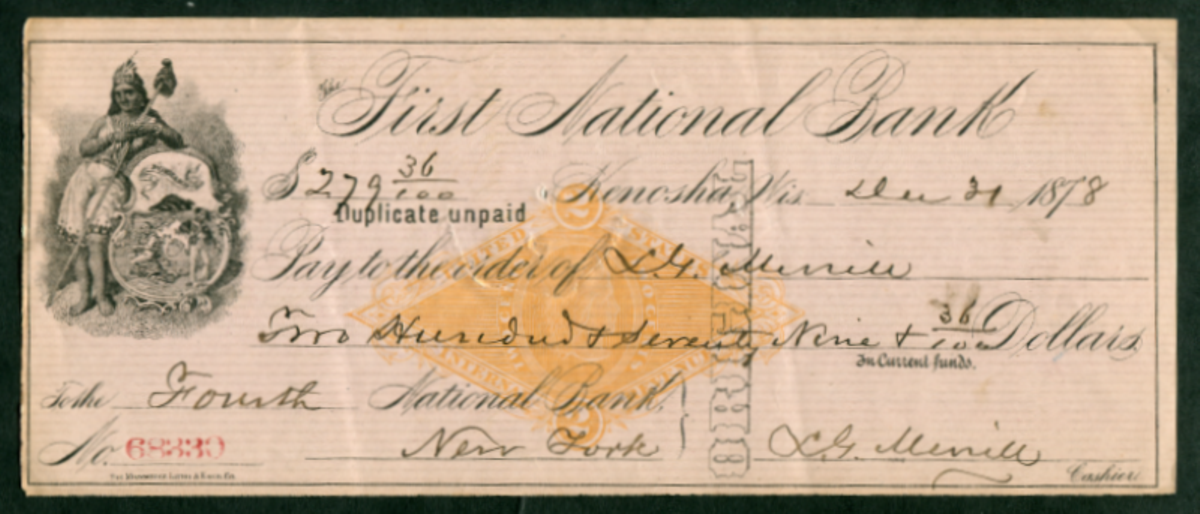 The First National Bank
$ 279 36/100 Kenosha, Wis. Dec 31 1878
Duplicate unpaid
Pay to the order of L.G. Merrill
Two Hundred & Seventy Nine & 36/100 Dollars
In Current funds.
To the Fourth National Bank,
No. 68339 New York L.G. Merrill
Cashier
UNITED STATES
INTERNAL REVENUE
2
2